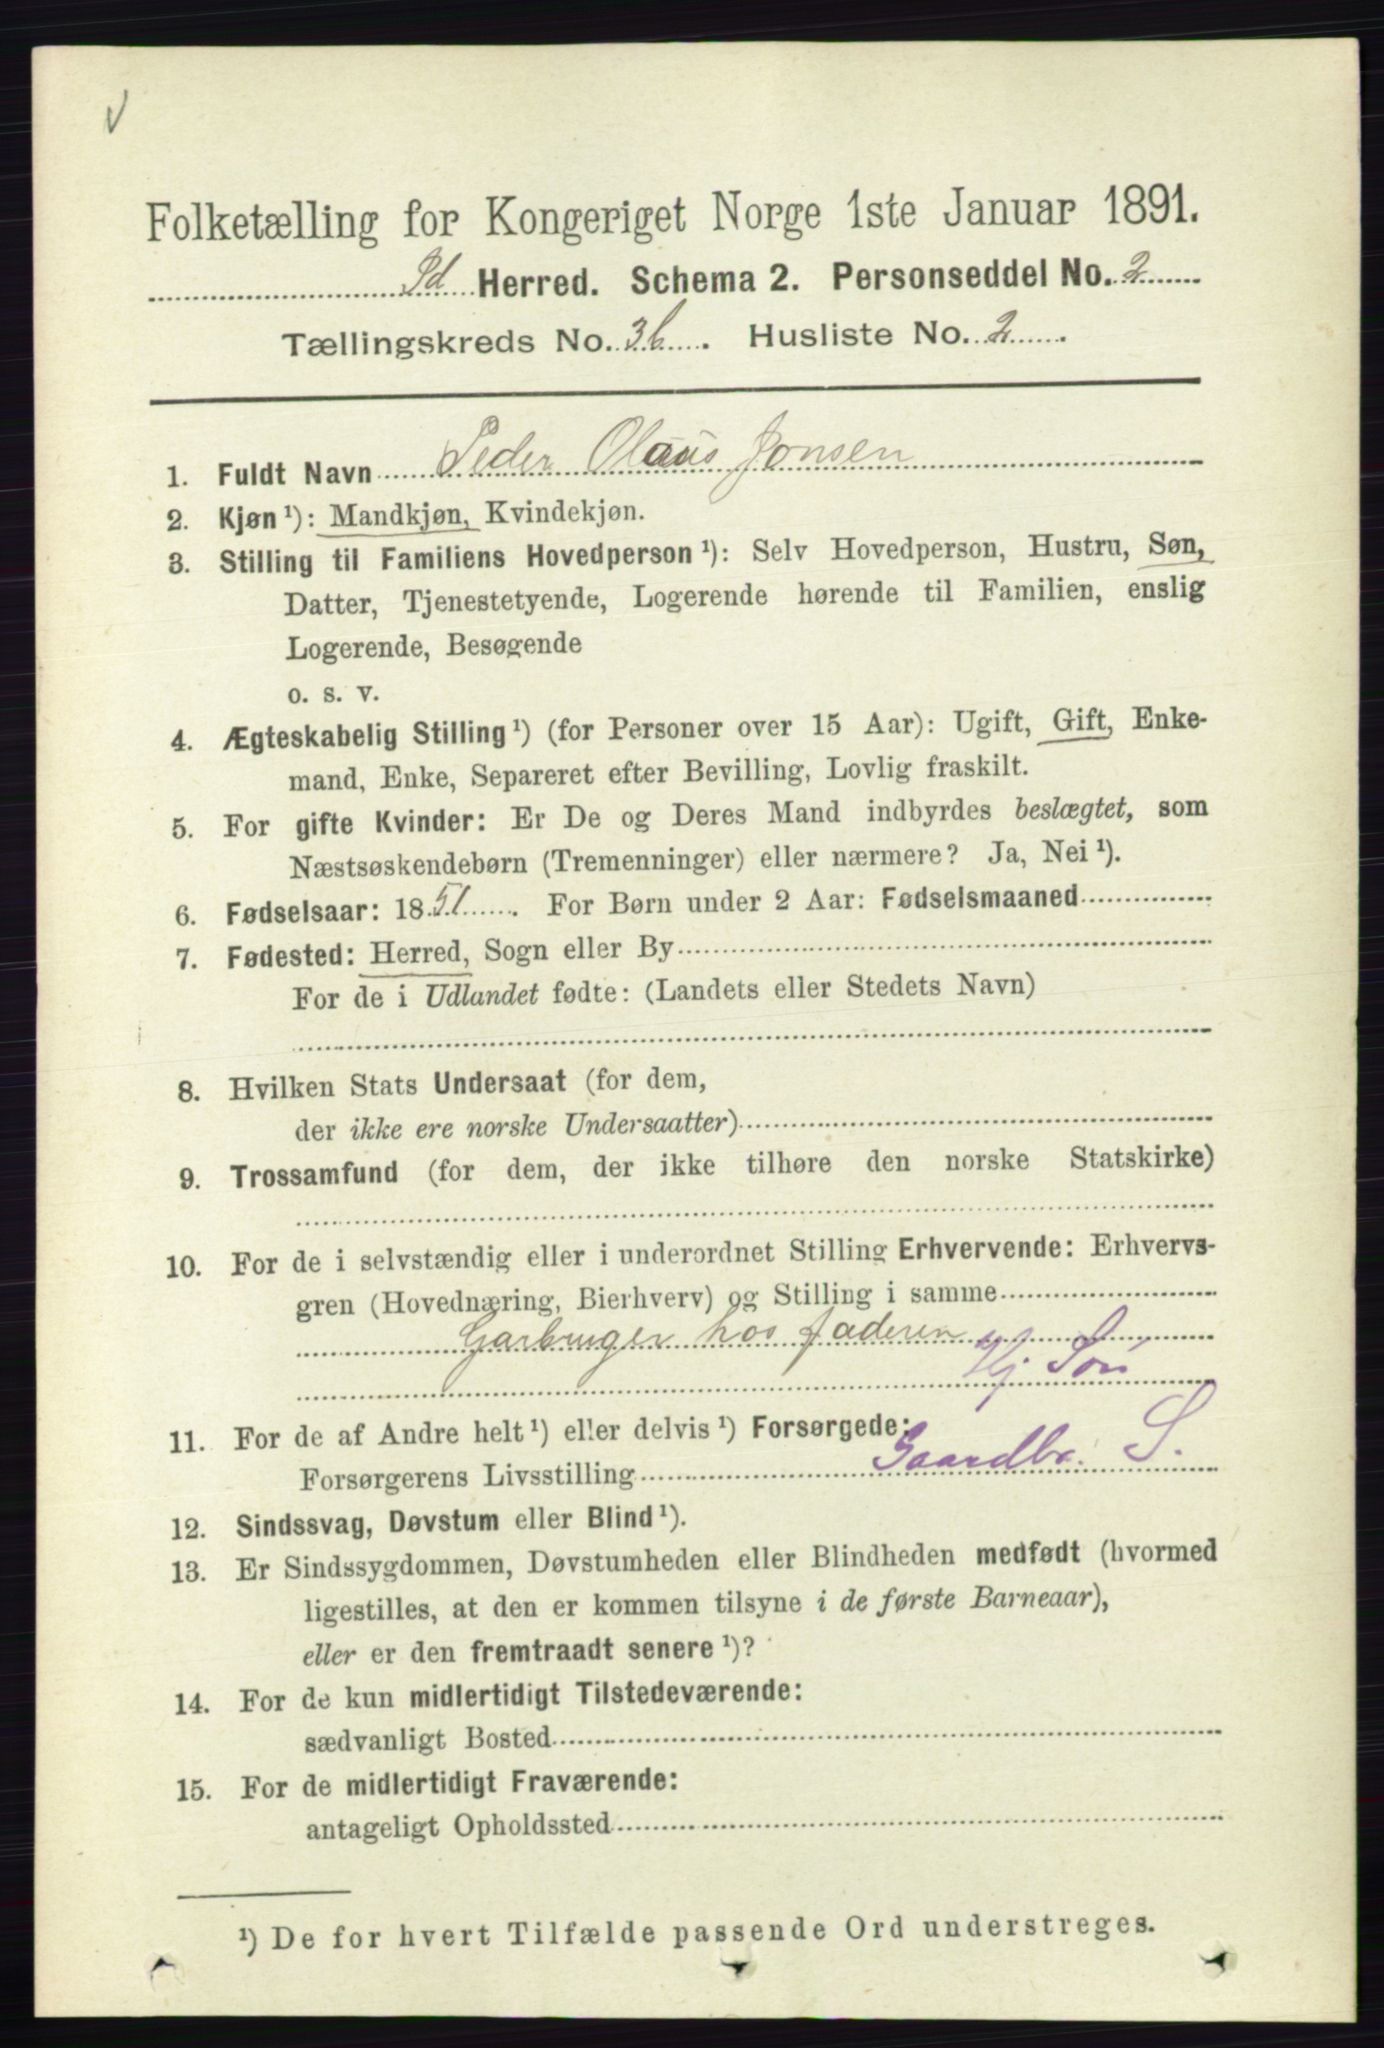 Folketælling for Kongeriget Norge 1ste Januar 1891.
Id Herred. Schema 2. Personseddel No. 2
Tællingskreds No. 3b. Husliste No. 2
1. Fuldt Navn Peder Olaus Jonsen
2. Kjøn ¹): Mandkjøn, Kvindekjøn.
3. Stilling til Familiens Hovedperson ¹): Selv Hovedperson, Hustru, Søn,
Datter, Tjenestetyende, Logerende hørende til Familien, enslig
Logerende, Besøgende
o. s. v.
4. Ægteskabelig Stilling ¹) (for Personer over 15 Aar): Ugift, Gift, Enke-
mand, Enke, Separeret efter Bevilling, Lovlig fraskilt.
5. For gifte Kvinder: Er De og Deres Mand indbyrdes beslægtet, som
Næstsøskendebørn (Tremenninger) eller nærmere? Ja, Nei ¹).
6. Fødselsaar: 1851. For Børn under 2 Aar: Fødselsmaaned
7. Fødested: Herred, Sogn eller By
For de i Udlandet fødte: (Landets eller Stedets Navn)
8. Hvilken Stats Undersaat (for dem,
der ikke ere norske Undersaatter)
9. Trossamfund (for dem, der ikke tilhøre den norske Statskirke)
10. For de i selvstændig eller i underordnet Stilling Erhvervende: Erhvervs-
gren (Hovednæring, Bierhverv) og Stilling i samme
Garbruger hos faderen
Hj Søn
11. For de af Andre helt ¹) eller delvis ¹) Forsørgede:
Forsørgerens Livsstilling Gaardbr. S.
12. Sindssvag, Døvstum eller Blind ¹).
13. Er Sindssygdommen, Døvstumheden eller Blindheden medfødt (hvormed
ligestilles, at den er kommen tilsyne i de første Barneaar),
eller er den fremtraadt senere ¹)?
14. For de kun midlertidigt Tilstedeværende:
sædvanligt Bosted
15. For de midlertidigt Fraværende:
antageligt Opholdssted
¹) De for hvert Tilfælde passende Ord understreges.